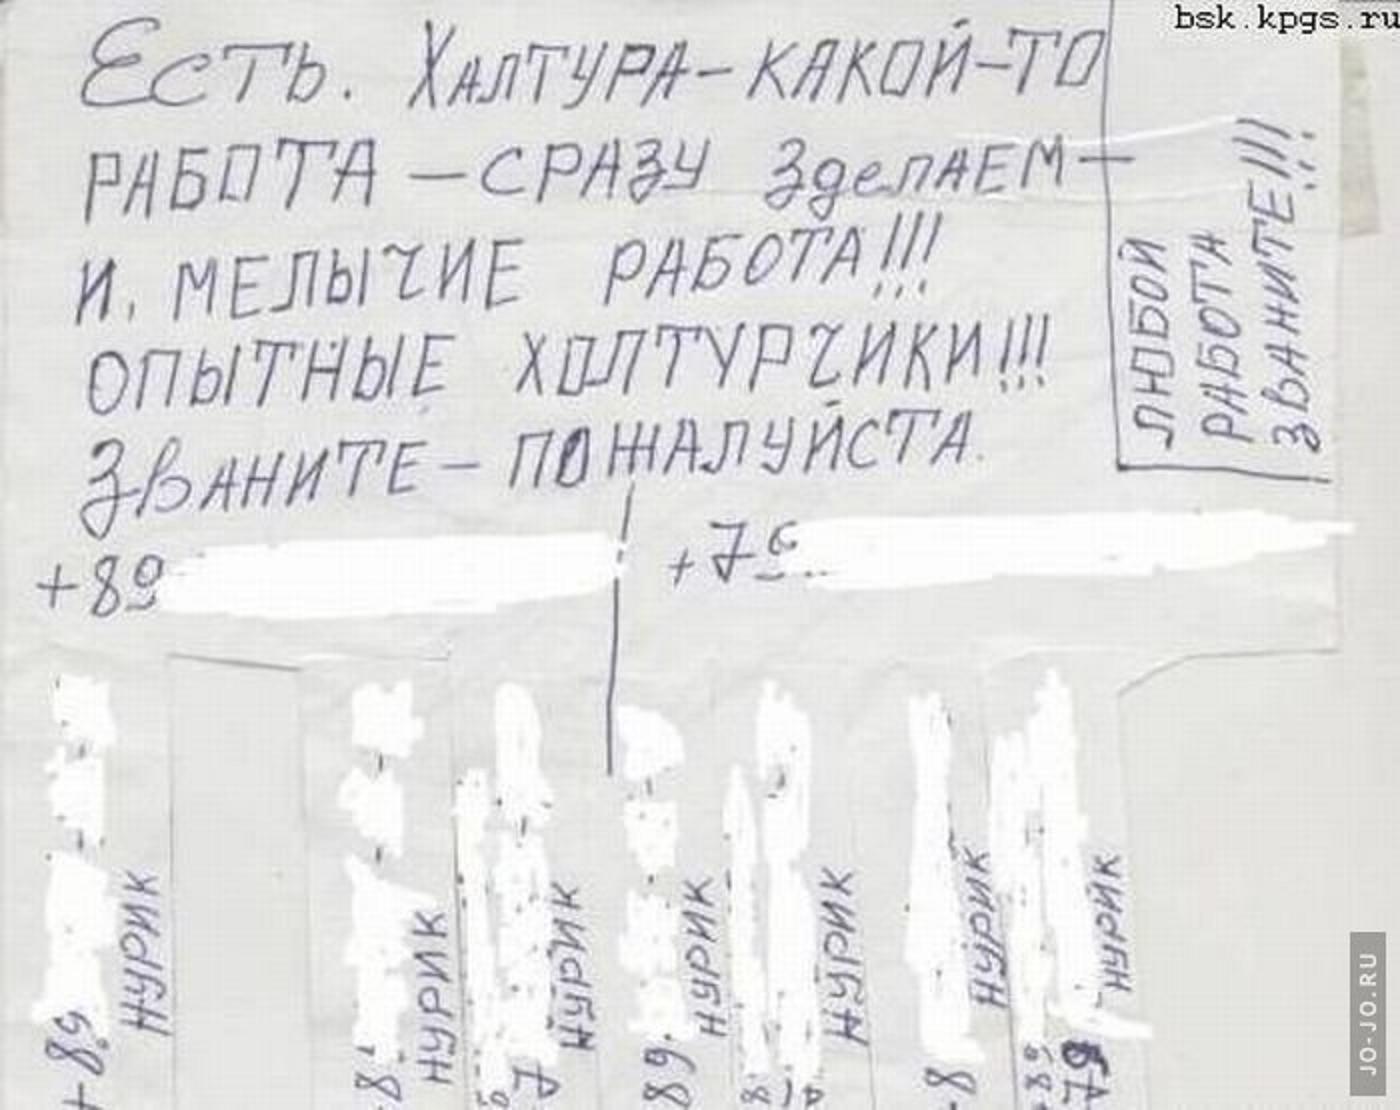 bsk.kpgs.ru
ЕСТЬ. ХАЛТУРА-КАКОЙ-ТО
РАБОТА-СРАЗУ ЗДЕЛАЕМ-
И. МЕЛЫЧИЕ РАБОТА!!!
ОПЫТНЫЕ ХОЛТУРЧИКИ!!!
ЗВАНИТЕ-ПОЖАЛУЙСТА.
ЛЮБОЙ
РАБОТА
ЗВАНИТЕ!!!
+89
+79
НУРИК
НУРИК
НУРИК
НУРИК
НУРИК
НУРИК
НУРИК
JO-JO.RU